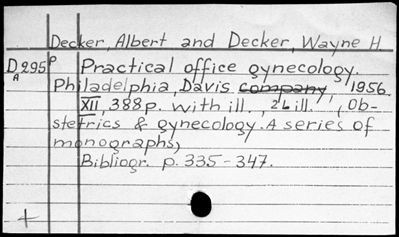 Decker, Albert and Decker, Wayne H
D 295 P Practical office gynecology.
A
Philadelphia, Davis company, 1956.
XII, 388 p. with ill., 26 ill. , (Ob-
stetrics & gynecology. A series of
monographs)
Bibliogr. p. 335-347.
+